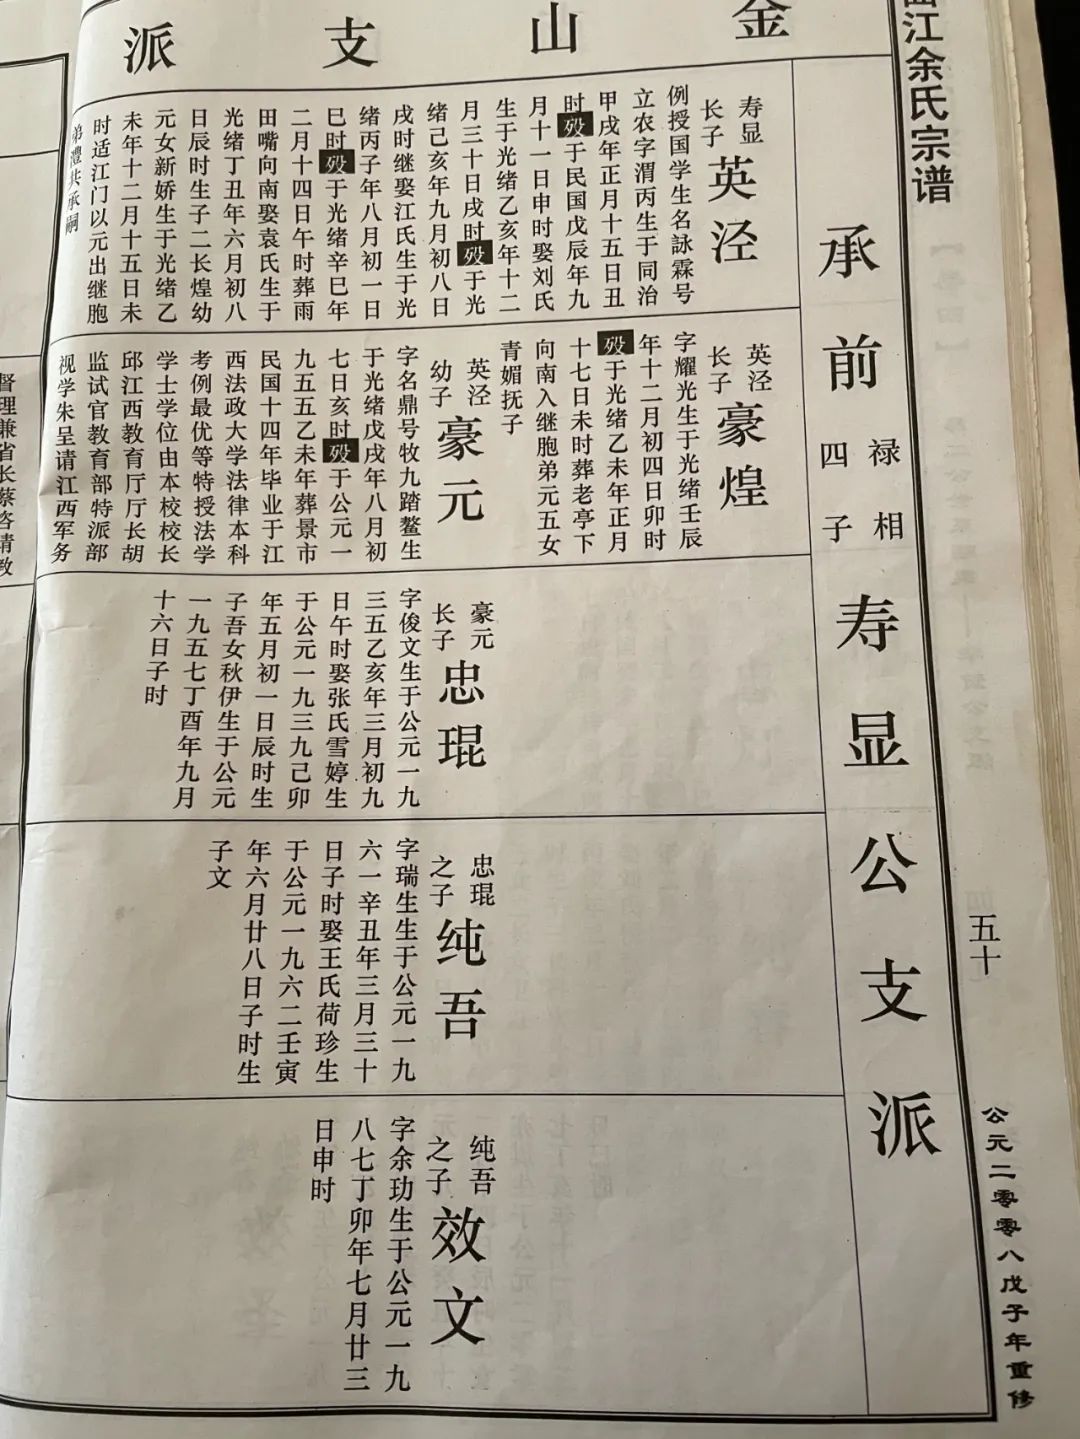 江余氏宗谱
五十
公元二零零八戊子年重修
金山支派
承前
禄相
四子
寿显公支派
寿显
长子
英泾
例授国学生名詠霖号
立农字渭丙生于同治
甲戌年正月十五日丑
时殁于民国戊辰年九
月十一日申时娶刘氏
生于光绪乙亥年十二
月三十日戌时殁于光
绪己亥年九月初八日
戌时继娶江氏生于光
绪丙子年八月初一日
巳时殁于光绪辛巳年
二月十四日午时葬雨
田嘴向南娶袁氏生于
光绪丁丑年六月初八
日辰时生子二长煌幼
元女新娇生于光绪乙
未年十二月十五日未
时适江门以元出继胞
弟澧共承嗣
英泾
长子
豪煌
字耀光生于光绪壬辰
年十二月初四日卯时
殁于光绪乙未年正月
十七日未时葬老亭下
向南入继胞弟元五女
青媚抚子
英泾
幼子
豪元
字名鼎号牧九踏鳌生
于光绪戊戌年八月初
七日亥时殁于公元一
九五五乙未年葬景市
民国十四年毕业于江
西法政大学法律本科
考例最优等特授法学
学士学位由本校校长
邱江西教育厅厅长胡
监试官教育部特派部
视学朱呈请江西军务
督理兼省长蔡咨请教
豪元
长子
忠琨
字俊文生于公元一九
三五乙亥年三月初九
日午时娶张氏雪婷生
于公元一九三九己卯
年五月初一日辰时生
子吾女秋伊生于公元
一九五七丁酉年九月
十六日子时
忠琨
之子
纯吾
字瑞生生于公元一九
六一辛丑年三月三十
日子时娶王氏荷珍生
于公元一九六二壬寅
年六月廿八日子时生
子文
纯吾
之子
效文
字余玏生于公元一九
八七丁卯年七月廿三
日申时